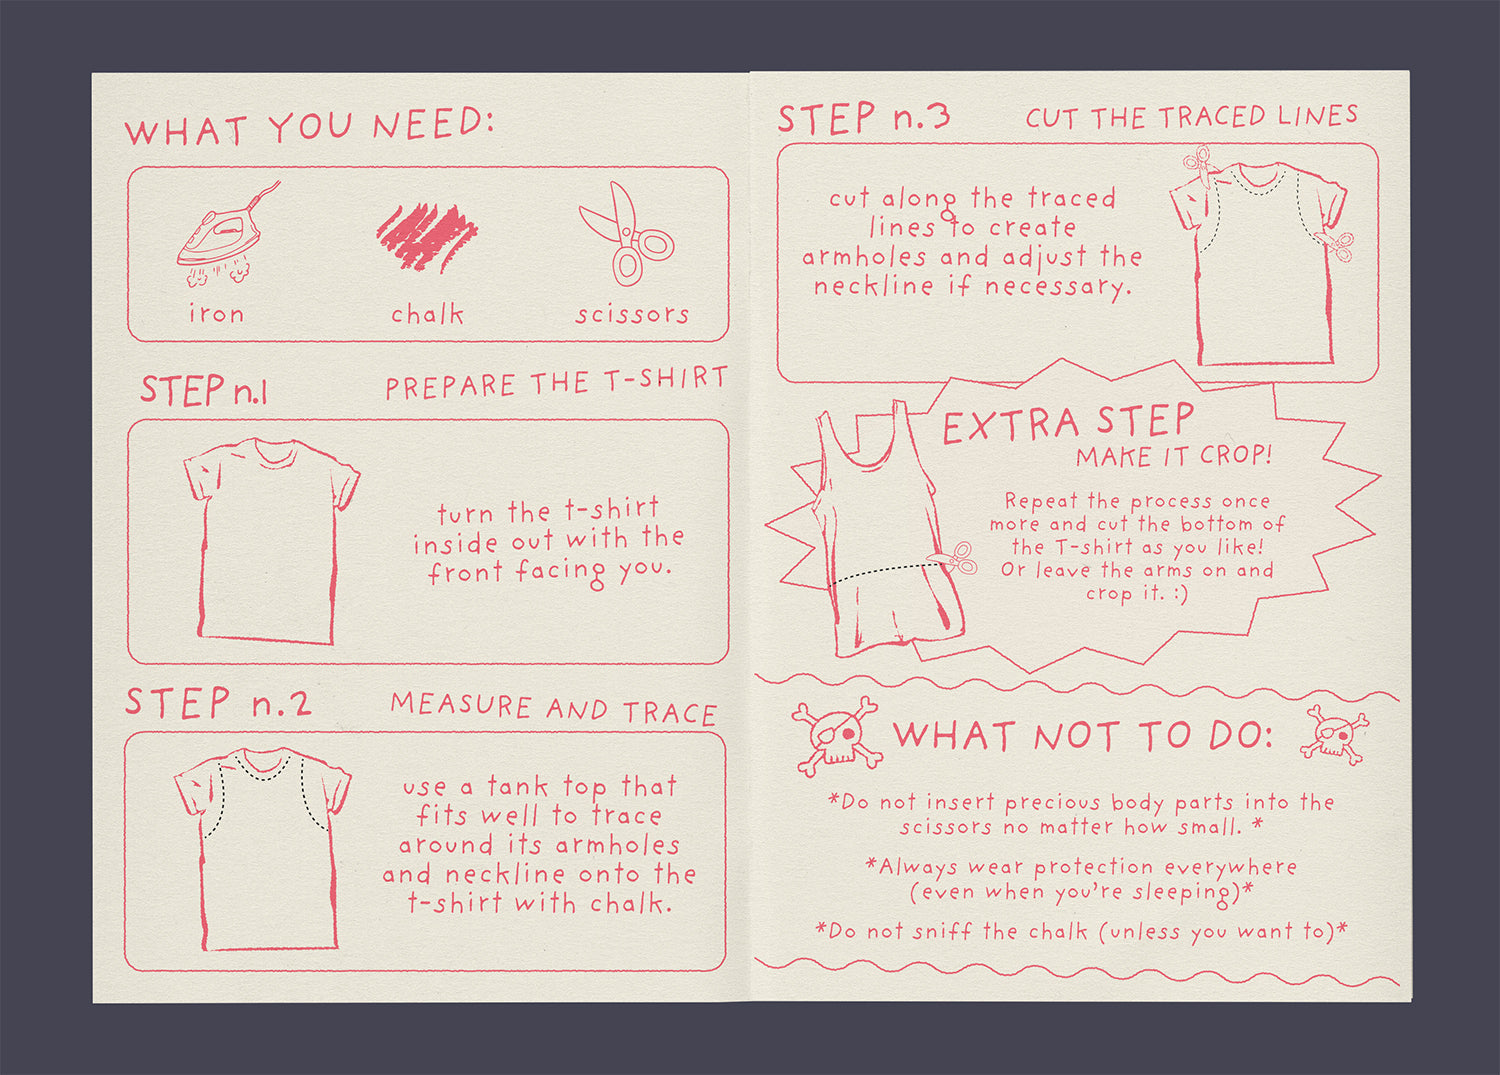 WHAT YOU NEED:
iron
chalk
scissors
STEP n.1
PREPARE THE T-SHIRT
turn the t-shirt
inside out with the
front facing you.
STEP n.2
MEASURE AND TRACE
use a tank top that
fits well to trace
around its armholes
and neckline onto the
t-shirt with chalk.
STEP n.3
CUT THE TRACED LINES
cut along the traced
lines to create
armholes and adjust the
neckline if necessary.
EXTRA STEP
MAKE IT CROP!
Repeat the process once
more and cut the bottom of
the T-shirt as you like!
Or leave the arms on and
crop it. :)
WHAT NOT TO DO:
*Do not insert precious body parts into the
scissors no matter how small. *
*Always wear protection everywhere
(even when you're sleeping)*
*Do not sniff the chalk (unless you want to)*